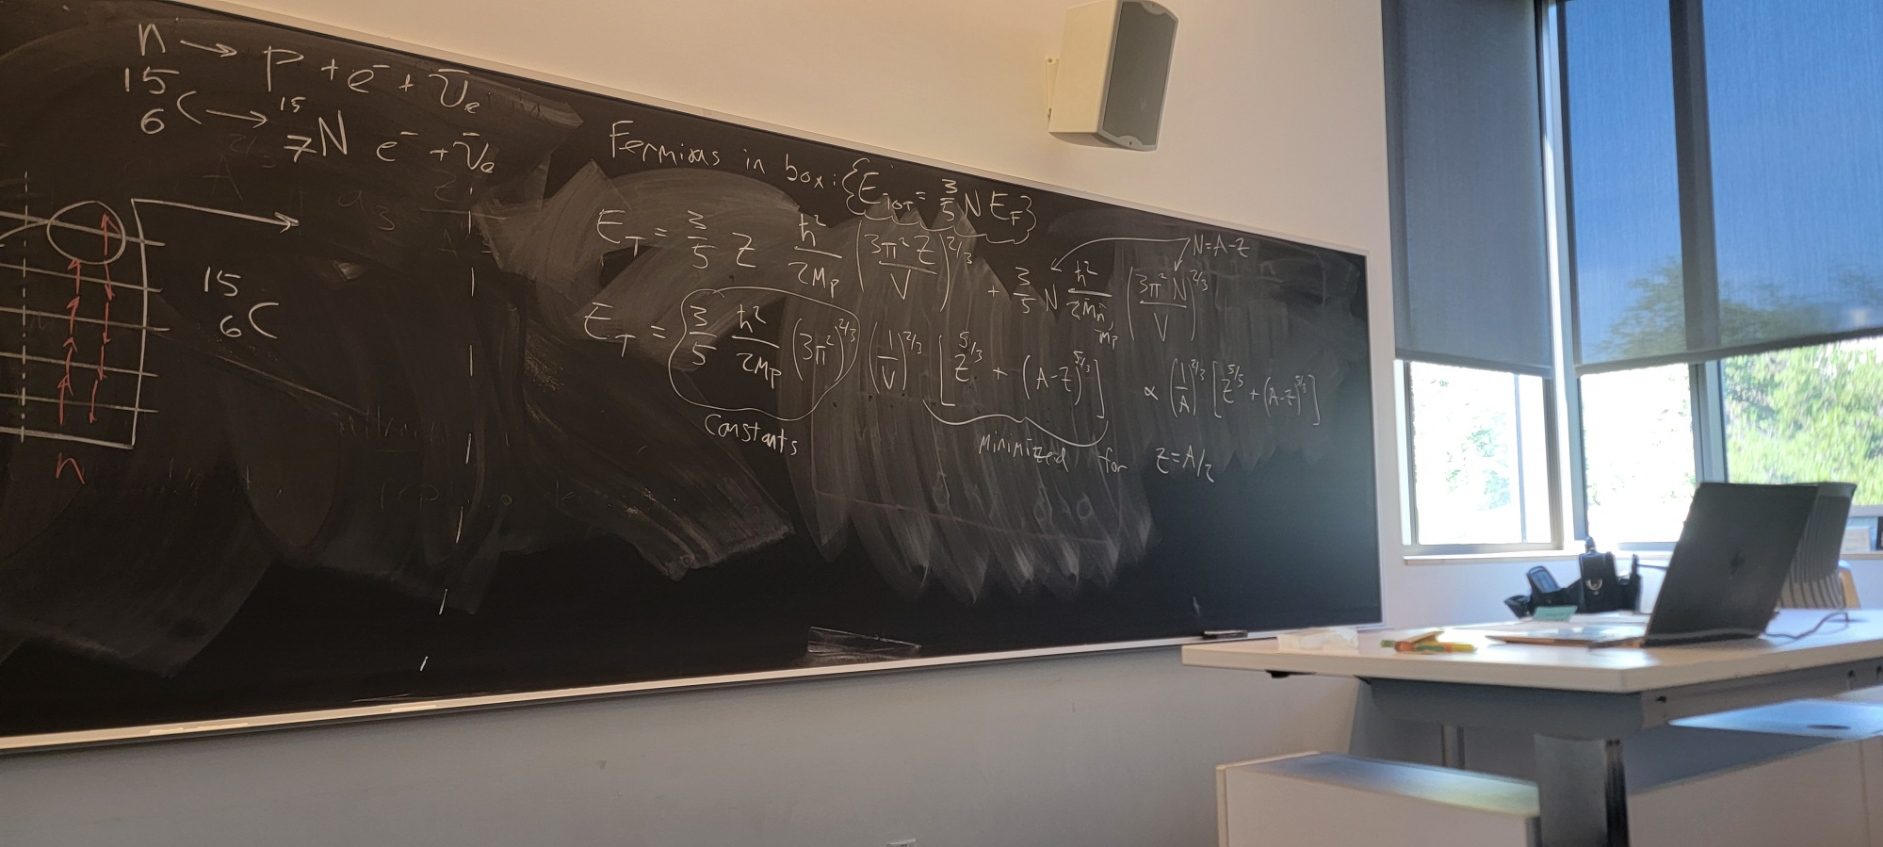 n → p + e⁻ + ν̄ₑ
¹⁵₆C → ¹⁵₇N e⁻ + ν̄ₑ
¹⁵₆C
n
Fermions in box: {E_TOT = 3/5 N E_F}
E_T = 3/5 Z ħ²/2M_p (3π² Z/V)^2/3 + 3/5 N ħ²/2M_n (3π² N/V)^2/3
N=A-Z
M_p
E_T = 3/5 ħ²/2M_p (3π²)^2/3 (1/V)^2/3 [Z^5/3 + (A-Z)^5/3] ∝ (1/A)^2/3 [Z^5/3 + (A-Z)^5/3]
Constants
Minimized for Z=A/2